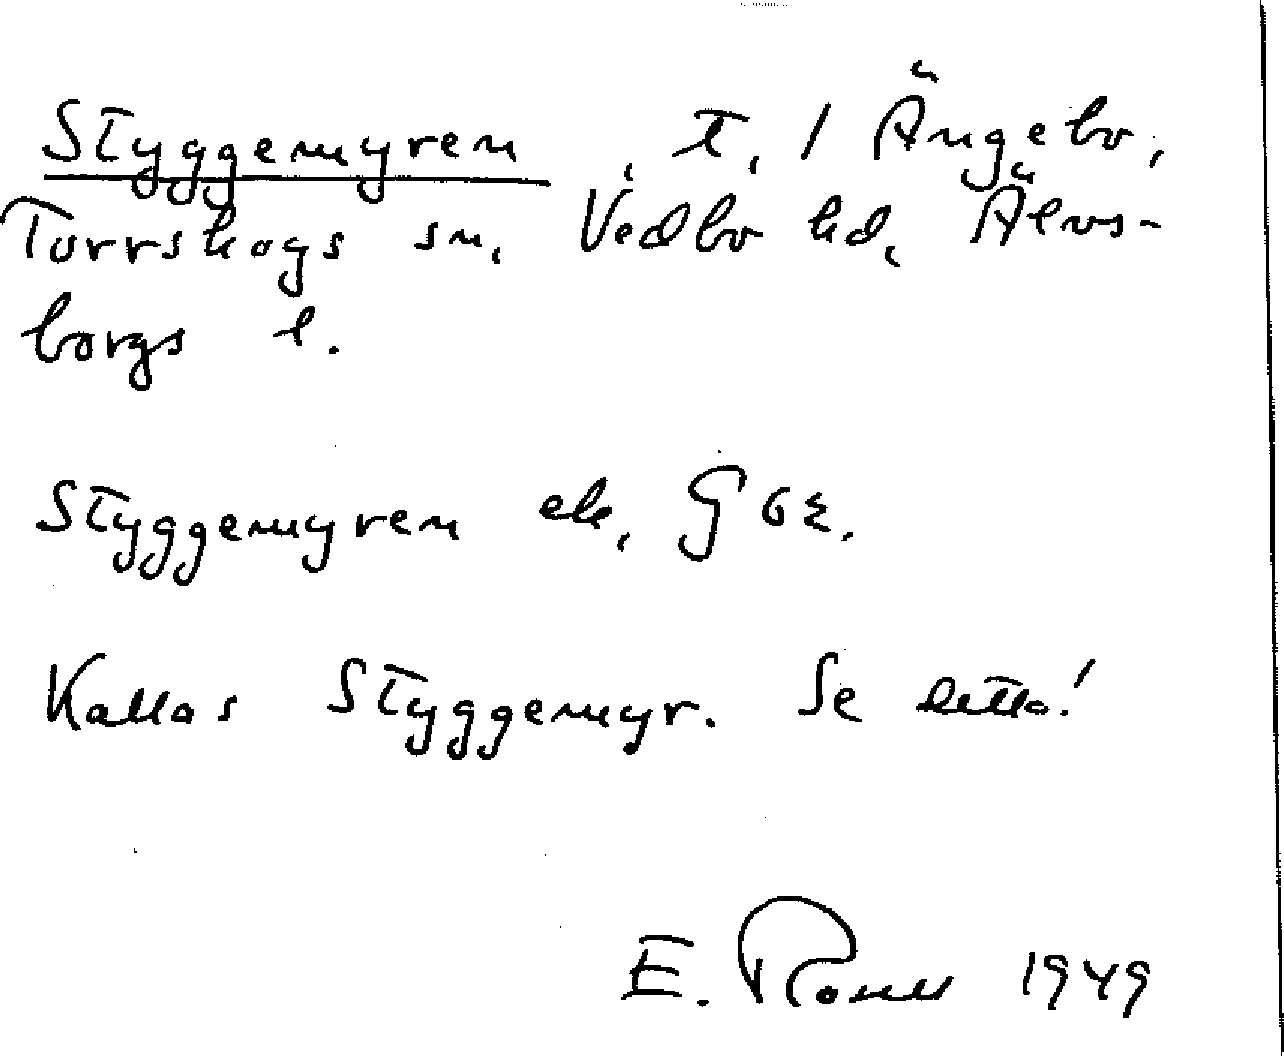 Styggemyren, t. 1 Ängebo,
Torrskogs sn, Vedbo hd, Älvs-
borgs l.
Styggemyren ek, G 62.
Kallas Styggemyr. Se detta!
E. 1949